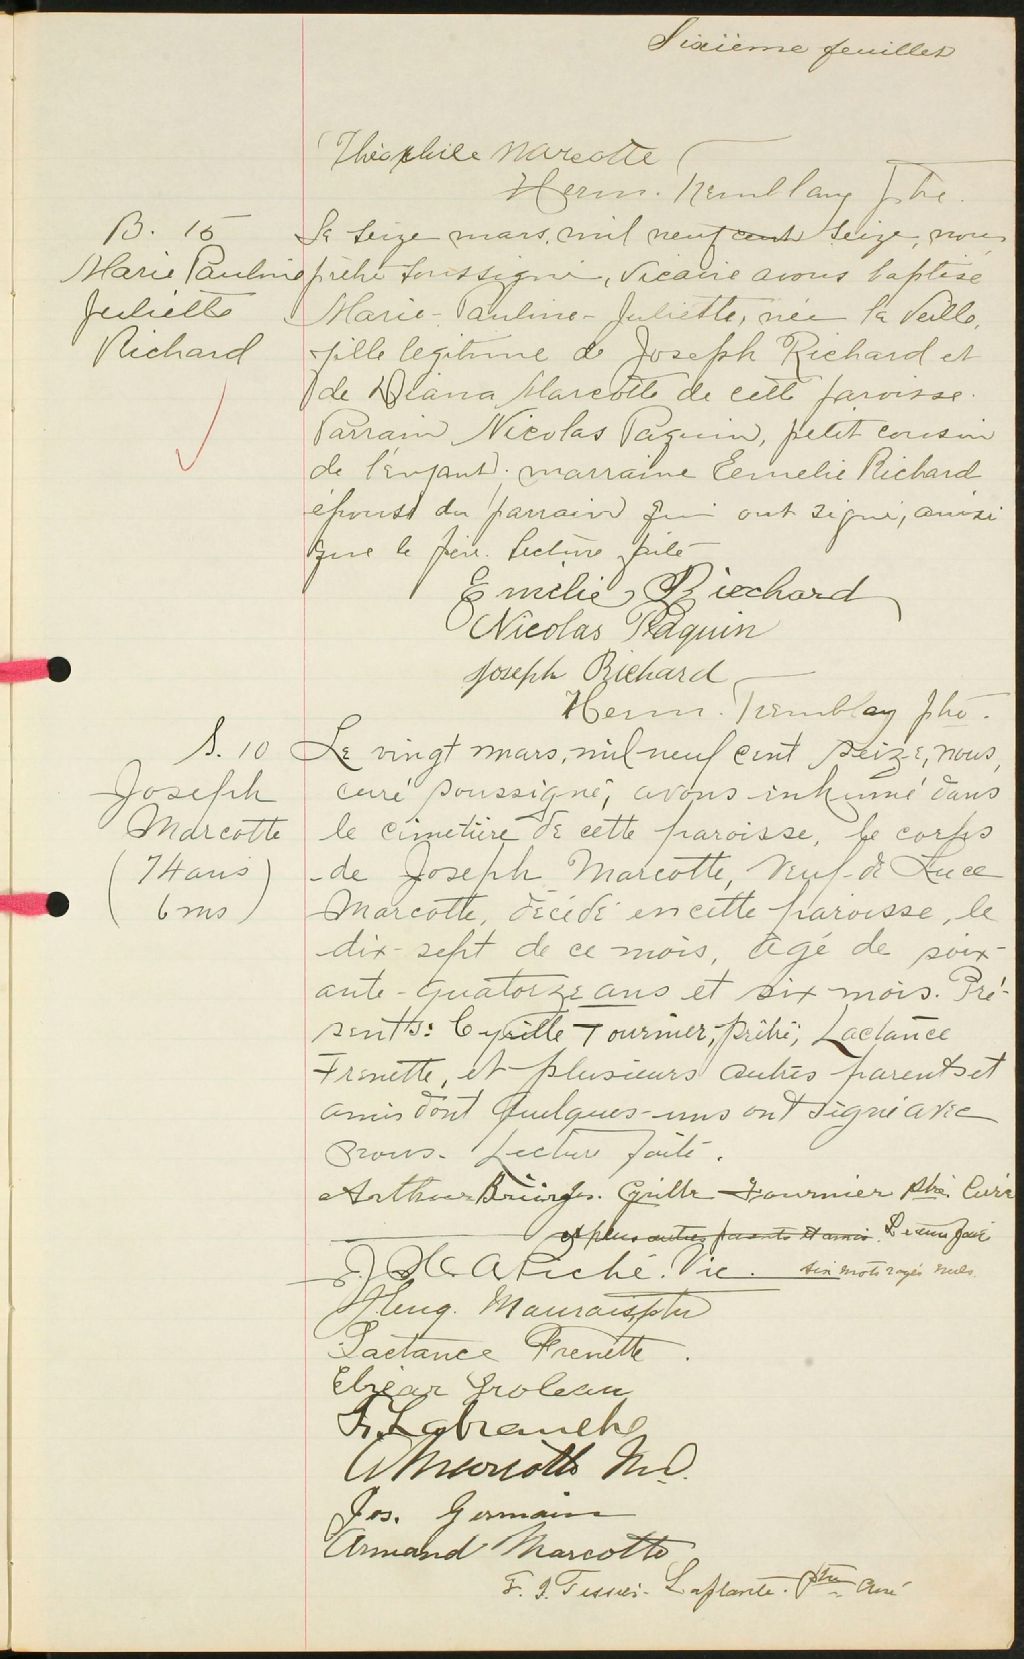 Sixième feuillet
Théophile Marcotte
Herm. Tremblay ptre.
B. 15
Marie Pauline
Juliette
Richard
Le seize mars, mil neuf cent seize, nous
prêtre soussigné, vicaire avons baptisé
Marie-Pauline-Juliette, née la veille,
fille légitime de Joseph Richard et
de Diana Marcotte de cette paroisse.
Parrain Nicolas Paquin, petit cousin
de l'enfant; marraine Eemelie Richard
épouse du parrain qui ont signé, ainsi
que le père. Lecture faite
Emilie Riechard
Nicolas Paquin
Joseph Richard
Herm. Tremblay ptre.
S. 10
Joseph
Marcotte
(74 ans
6 ms)
Le vingt mars, mil neuf cent seize, nous,
curé soussigné, avons inhumé dans
le cimetière de cette paroisse, le corps
de Joseph Marcotte, veuf de Luce
Marcotte, décédé en cette paroisse, le
dix-sept de ce mois, âgé de soix-
ante-quatorze ans et six mois. Pré-
sents: Cyrille Fournier, prêtre; Lactance
Frenette, et plusieurs autres parents et
amis dont quelques-uns ont signé avec
nous. Lecture faite.
Arthur Cyrille Fournier ptre. Curé
et plus autres parents et amis. Lecture faite
six mots rayés nuls
Piché. Vic.
Maurais ptre
Lactance Frenette.
Elzéar Groleau
Labranche
A Marcotte M.D.
Jos. Germain
Armand Marcotte
F. X. Tessier-Laflante. ptre curé